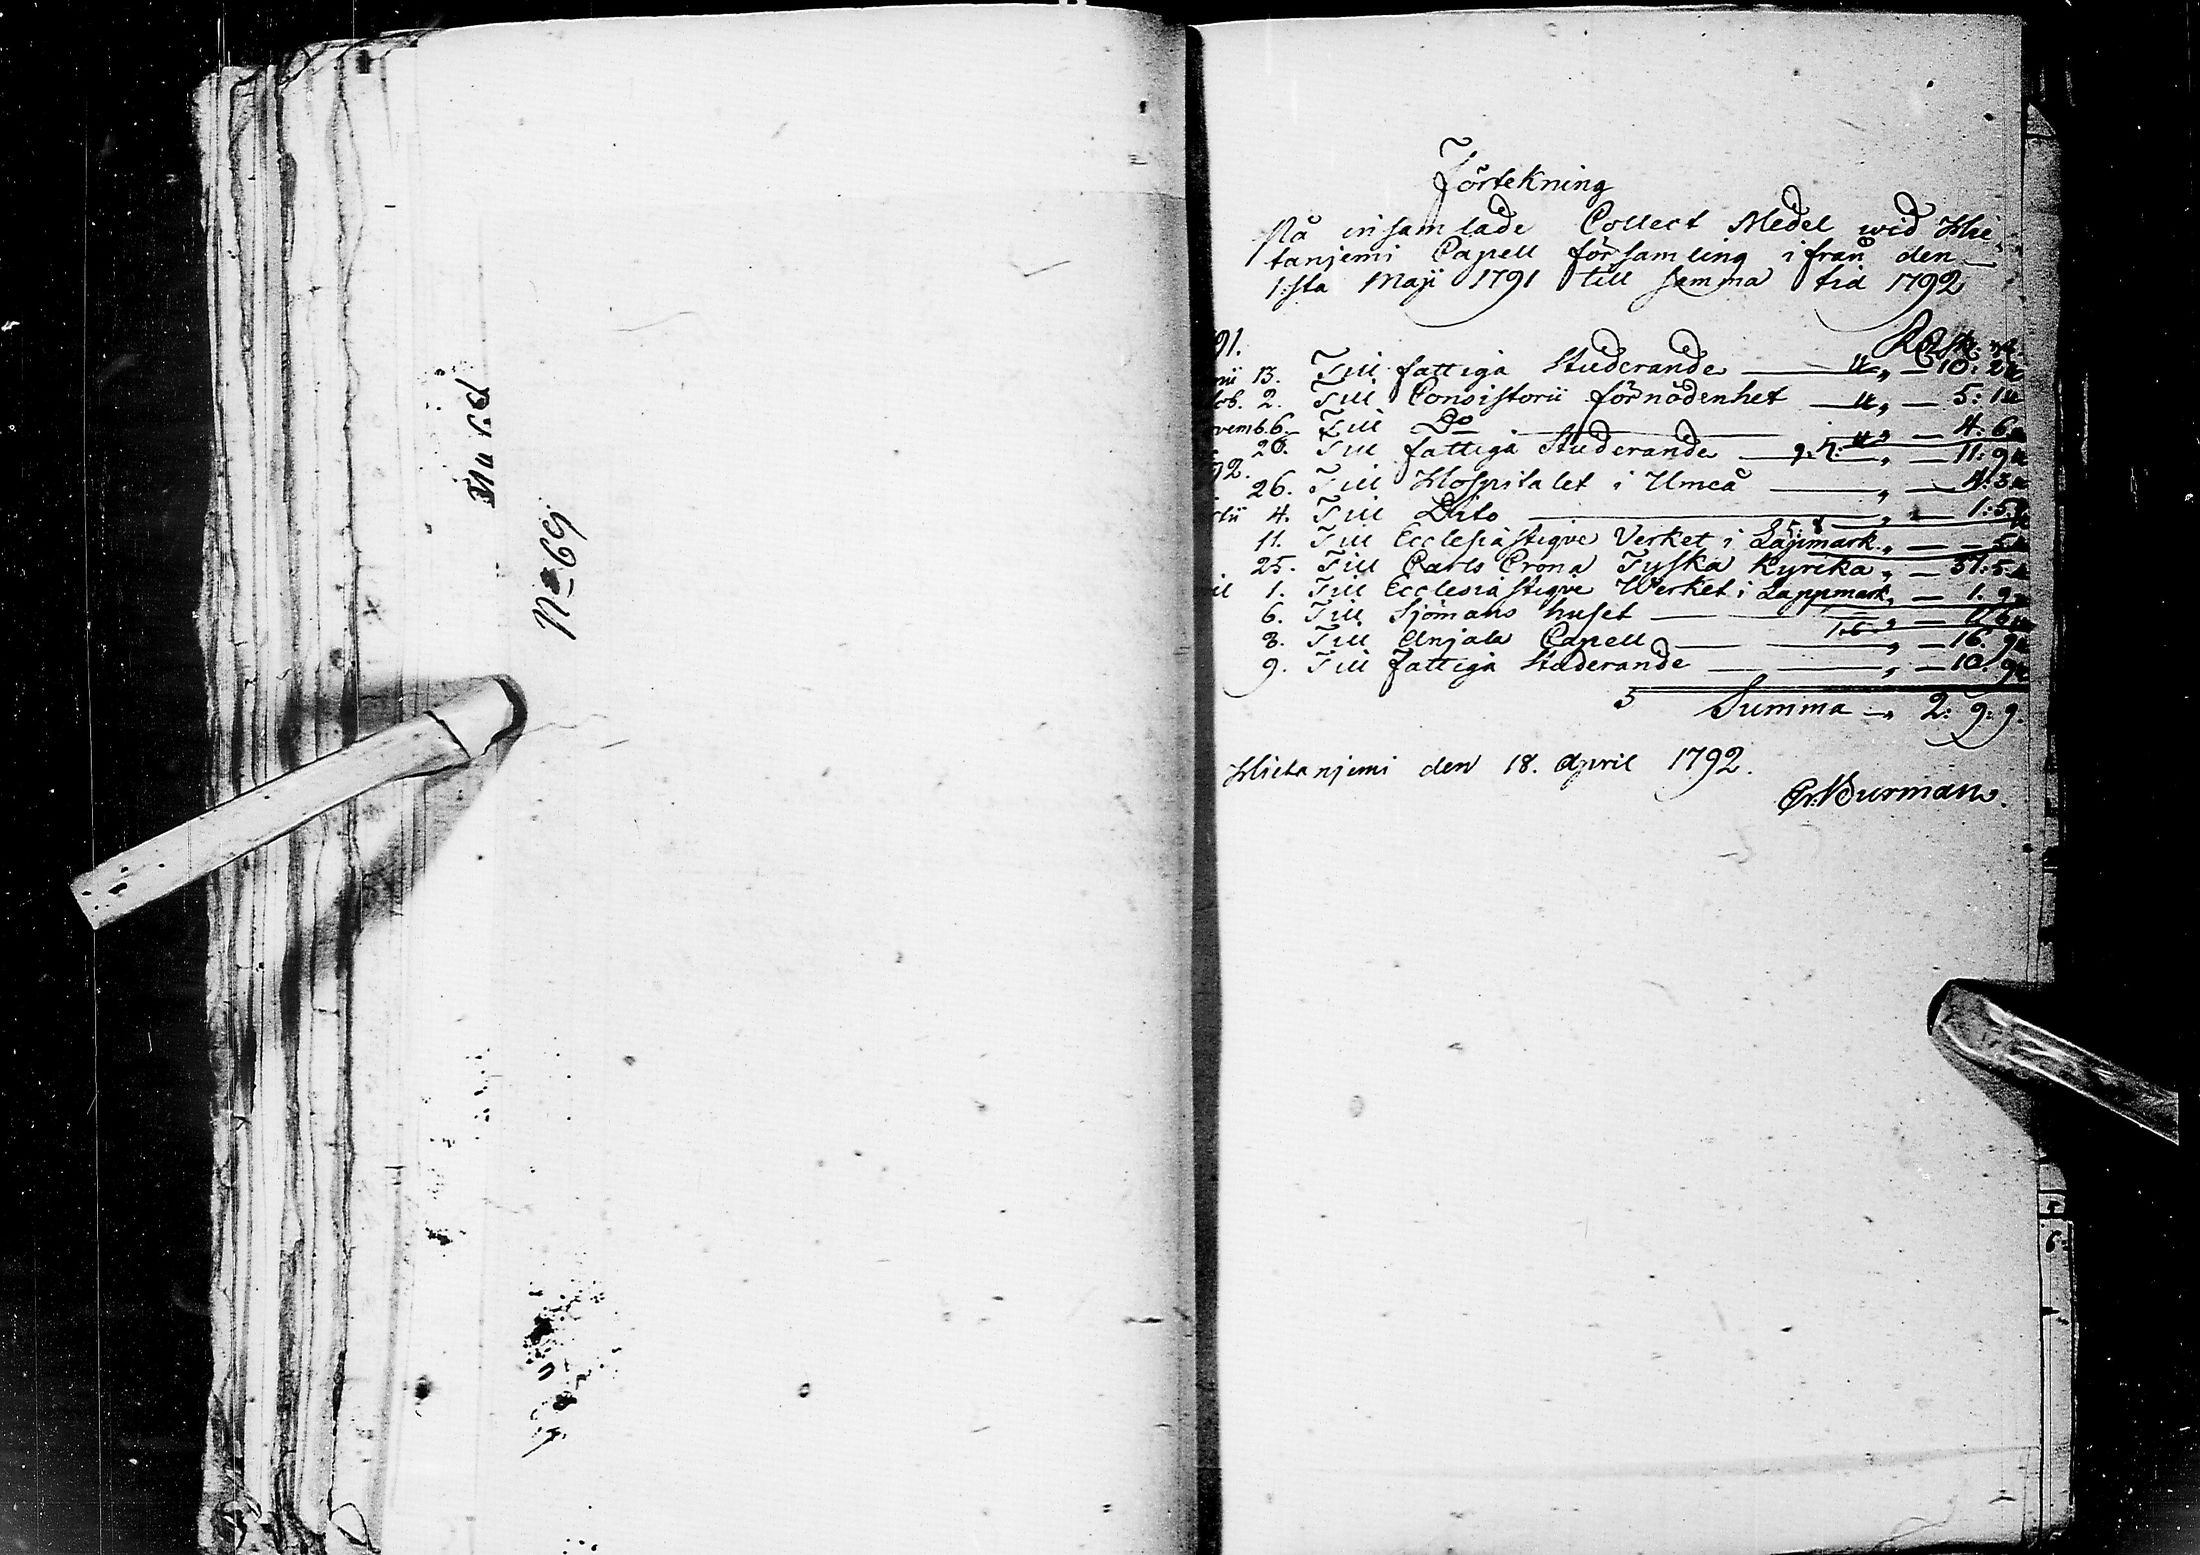 No 69.
Förtekning
På insamlade Collect Medel wid Hie-
tanjemi Capell församling ifrån den
1:sta Maji 1791 till samma tid 1792
91.
13. Till fattiga Studerande — „ — 10: 2
ob. 2. Till Consistorii förnödenhet — „ — 5: 1
vemb. 6. Till Do — „ — 4. 6
26. Till fattiga Studerande — „ — 11: 9
92.
26. Till Hospitalet i Umeå — „ — 4: 3
4. Till Dito — „ — 1: 5
5: 8
11. Till Ecclesiastique Verket i Lappmark „ — 5
25. Till Carls Crona Tyska Kyrika „ — 31: 5
il 1. Till Ecclesiastique Werket i Lappmark „ — 1. 9
6. Till Sjömans huset —
8. Till Anjala Capell — „ — 16. 9
9. Till Fattiga Studerande — „ — 10. 9
Summa — 2: 9: 9.
Hietanjemi den 18. April 1792.
Er. Burman.
6